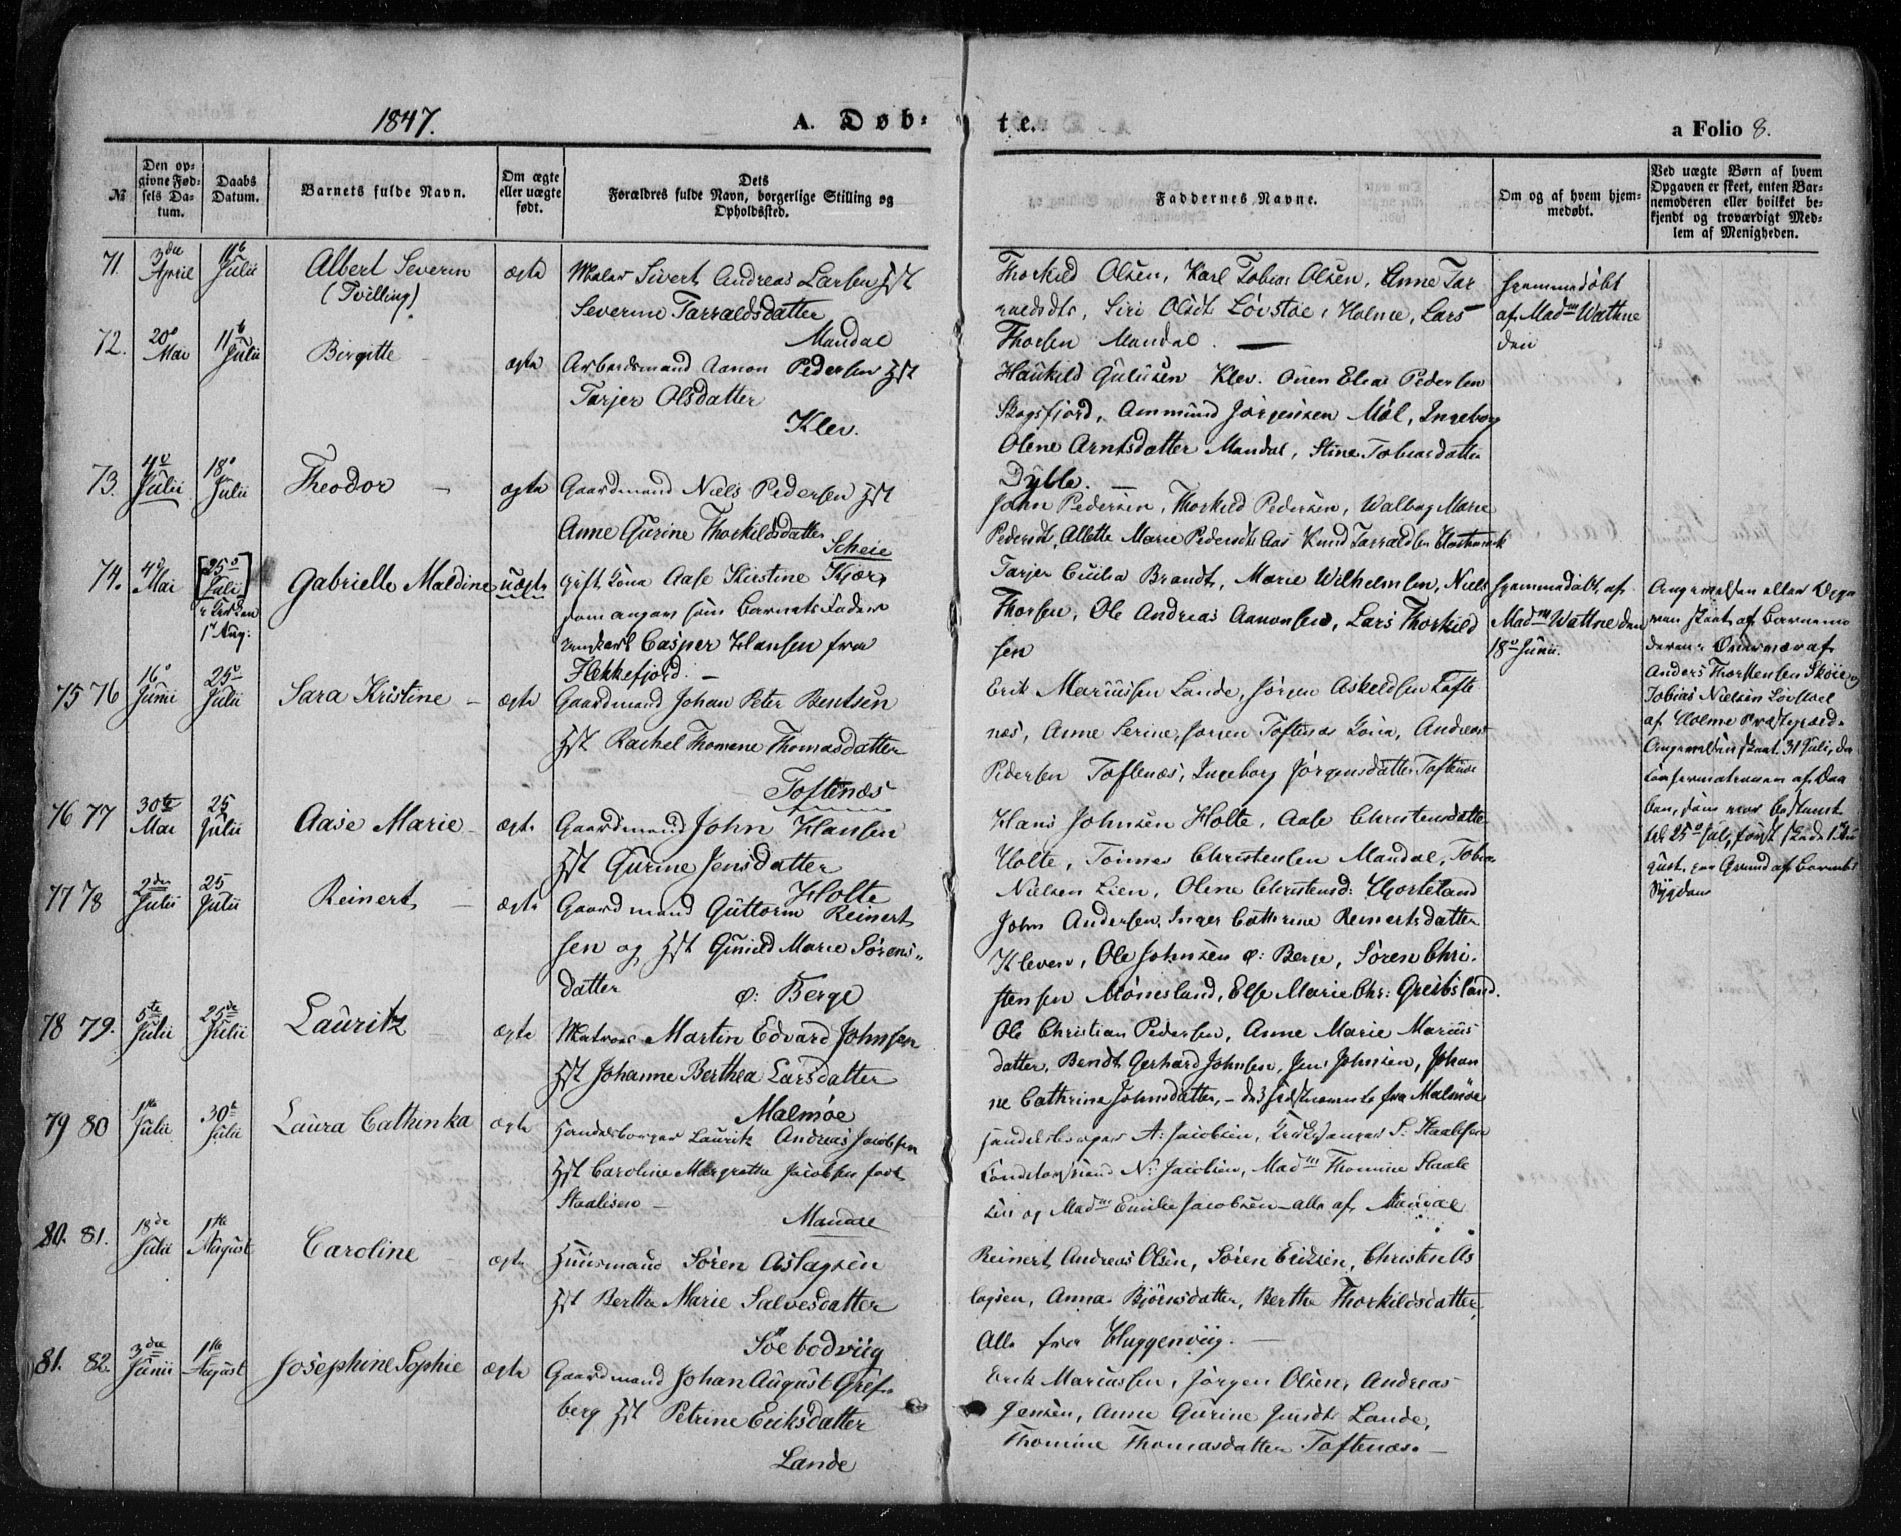 1847.
A. Døb-
te.
a Folio 8.
№
Den op-
givne Fød-
sels Da-
tum.
Daabs
Datum.
Barnets fulde Navn.
Om ægte
eller uægte
født.
Dets
Forældres fulde Navn, borgerlige Stilling og
Opholdssted.
Faddernes Navne.
Om og af hvem hjem-
medøbt.
Ved uægte Børn af hvem
Opgaven er skeet, enten Bar-
nemoderen eller hvilket be-
kjendt og troværdigt Med-
lem af Menigheden.
71.
3die
April
11te
Julii
Albert Severin
(Tvilling)
ægte
Maler Sivert Andreas Larsen Hst
Severine Tarraldsdatter
Mandal
Thorkild Olsen, Karl Tobias Olsen, Anne Tar
raldsdtr, Siri Olsdtr Løvstøe, Holme, Lars
Thorsen Mandal.
hjemmedøbt
af Madm Wathne
den
72.
20de
Mai
11te
Julii
Birgitte
ægte
Arbeidsmand Aanon Pedersen Hst
Tarjer Olsdatter
Klev.
Haukild Gulusen Klev. Onen Elias Pedersen
Skogsfjord, Ammund Jörgensen Möl, Ingeborg
Olene Arntsdatter Mandal, Stine Tobiasdatter
Dyble.
73.
4de
Julii
18de
Julii
Theodor
ægte
Gaardmand Niels Pedersen Hst
Anne Gurine Thorkildsdatter
Scheie
John Pedersen, Thorkild Pedersen, Walborg Marie
Pedersdt, Allette Marie Pedersdt Aas Knud Tarraldsen
74.
Mai
25de
Julii
i Kirken
1te Aug:
Gabrielle Maldine
uægte
gift Kona Aase Kirstine Kjær,
som angav som Barnets Fader
Casper Hansen fra
Flekkefjord.
Tarjer Cecilia Brandt, Marie Wilhelmsen, Niels
Thorsen, Ole Andreas Aanonsen, Lars Thorkild
sen
hjemmedøbt af
Madm Wathne den
18de Junii.
Angivelsen eller Opga
ven skeet af Barnemo
deren i Overvær af
Anders Thorstensen Skøie og
Tobias Nielsen Løvstoel
af Holme Præstegjeld.
Angivelsen skeet 31 Juli, da
Confirmationen af Daa
ben, som var bestemt
til 25de Juli, først skede 1te Au
gust, paa Grund af Barnets
Sygdom
75 76
16de
Junii
25de
Julii
Sara Kristine
ægte
Gaardmand Johan Peter Bentsen
Hst Rachel Thomene Thomasdatter
Toftenæs
Erik Mariussen Lande, Jören Askeldsen Tofte
næs, Anne Serine, Jören Toftenæs Kona, Andreas
Pedersen Toftenæs, Ingeborg Jörgensdatter Toftenæs
76 77
30te
Mai
25
Julii
Aase Marie
ægte
Gaardmand John Hansen
Hst Gurine Jensdatter
Holte
Hans Johnsen Holte, Aase Christensdatter
Holte, Tönnes Christensen Mandal, Tobias
Nielsen Lien, Olene Christensd: Hjorteland
77 78
2den
Julii
25
Julii
Reinert
ægte
Gaardmand Guttorm Reinert
sen og Hst Gunild Marie Sörens-
datter
ø: Berge
John Andersen, Inger Cathrine Reinertsdatter
Kleven, Ole Johnsen ø: Berge, Sören Chri-
stensen Mönesland, Else Marie Chr: Greibsland.
78 79.
5te
Julii
25de
Julii
Lauritz
ægte
Matros Martin Edvard Johnsen
Hst Johanne Berthea Larsdatter
Malmøe
Ole Christian Pedersen, Anne Marie Marius
datter, Bendt Gerhard Johnsen, Jens Johnsen, Johan
ne Cathrine Johnsdatter, - de sidstnævnte fra Malmöe
79 80
1te
Julii
30te
Julii
Laura Cathinka
ægte
Handelsborger Lauritz Andreas Jacobsen
Hst Caroline Margrethe Jacobsen født
Staalesen
Mandal
Handelsborger A: Jacobsen, Kirkesanger S: Staalesen
N: Jacobsen, Madm Thomine Staale
sen og Madm Emilie Jacobsen - alle af Mandal
80. 81.
18de
Julii
1te
August
Caroline
ægte
Huusmand Sören Aslagsen
Hst Berthe Marie Salvesdatter
Söebodviig
Reinert Andreas Olsen, Sören Ericsen, Christen As
lagsen, Anna Björnsdatter, Berthe Thorkildsdatter,
Alle fra Chuggenviig.
81. 82.
3die
Junii
1te
August
Josephine Sophie
ægte
Gaardmand Johan August Gref-
berg Hst Petrine Eriksdatter
Lande
Erik Mariussen, Jörgen Olsen, Andreas
Jensen, Anne Gurine Lande,
Thomine Thomasdatter Toftenæs.